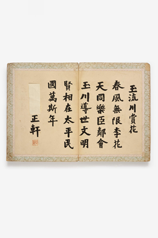 玉流川賞花
春風無限李花
天同樂臣鄰會
玉川得世文明
賢相在太平民
國萬斯年
正軒